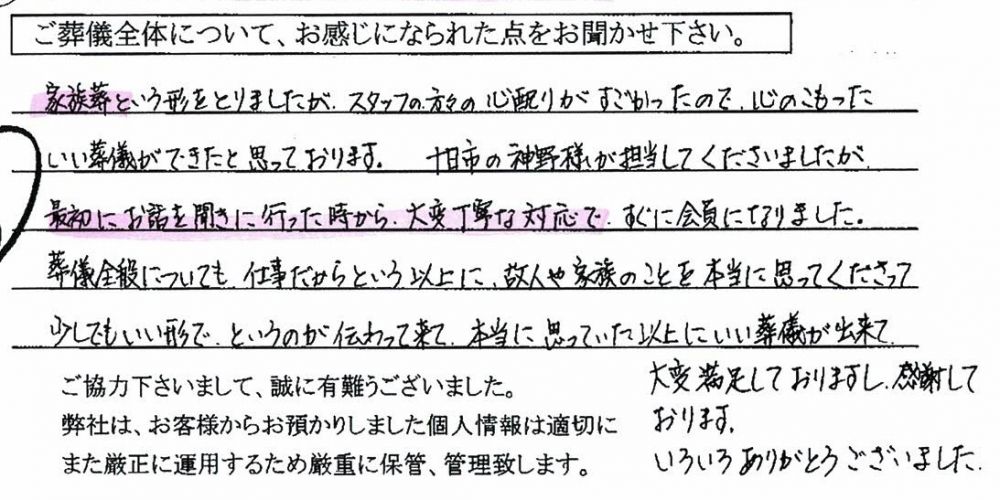 ご葬儀全体について、お感じになられた点をお聞かせ下さい。
家族葬という形をとりましたが、スタッフの方々の心配りがすごかったので、心のこもった
いい葬儀ができたと思っております。 十日市の神野様が担当してくださいましたが、
最初にお話を聞きに行った時から、大変丁寧な対応で、すぐに会員になりました。
葬儀全般についても、仕事だからという以上に、故人や家族のことを本当に思ってくださって
少しでもいい形で、というのが伝わって来て、本当に思っていた以上にいい葬儀が出来て、
大変満足しておりますし、感謝して
おります。
いろいろありがとうございました。
ご協力下さいまして、誠に有難うございました。
弊社は、お客様からお預かりしました個人情報は適切に
また厳正に運用するため厳重に保管、管理致します。